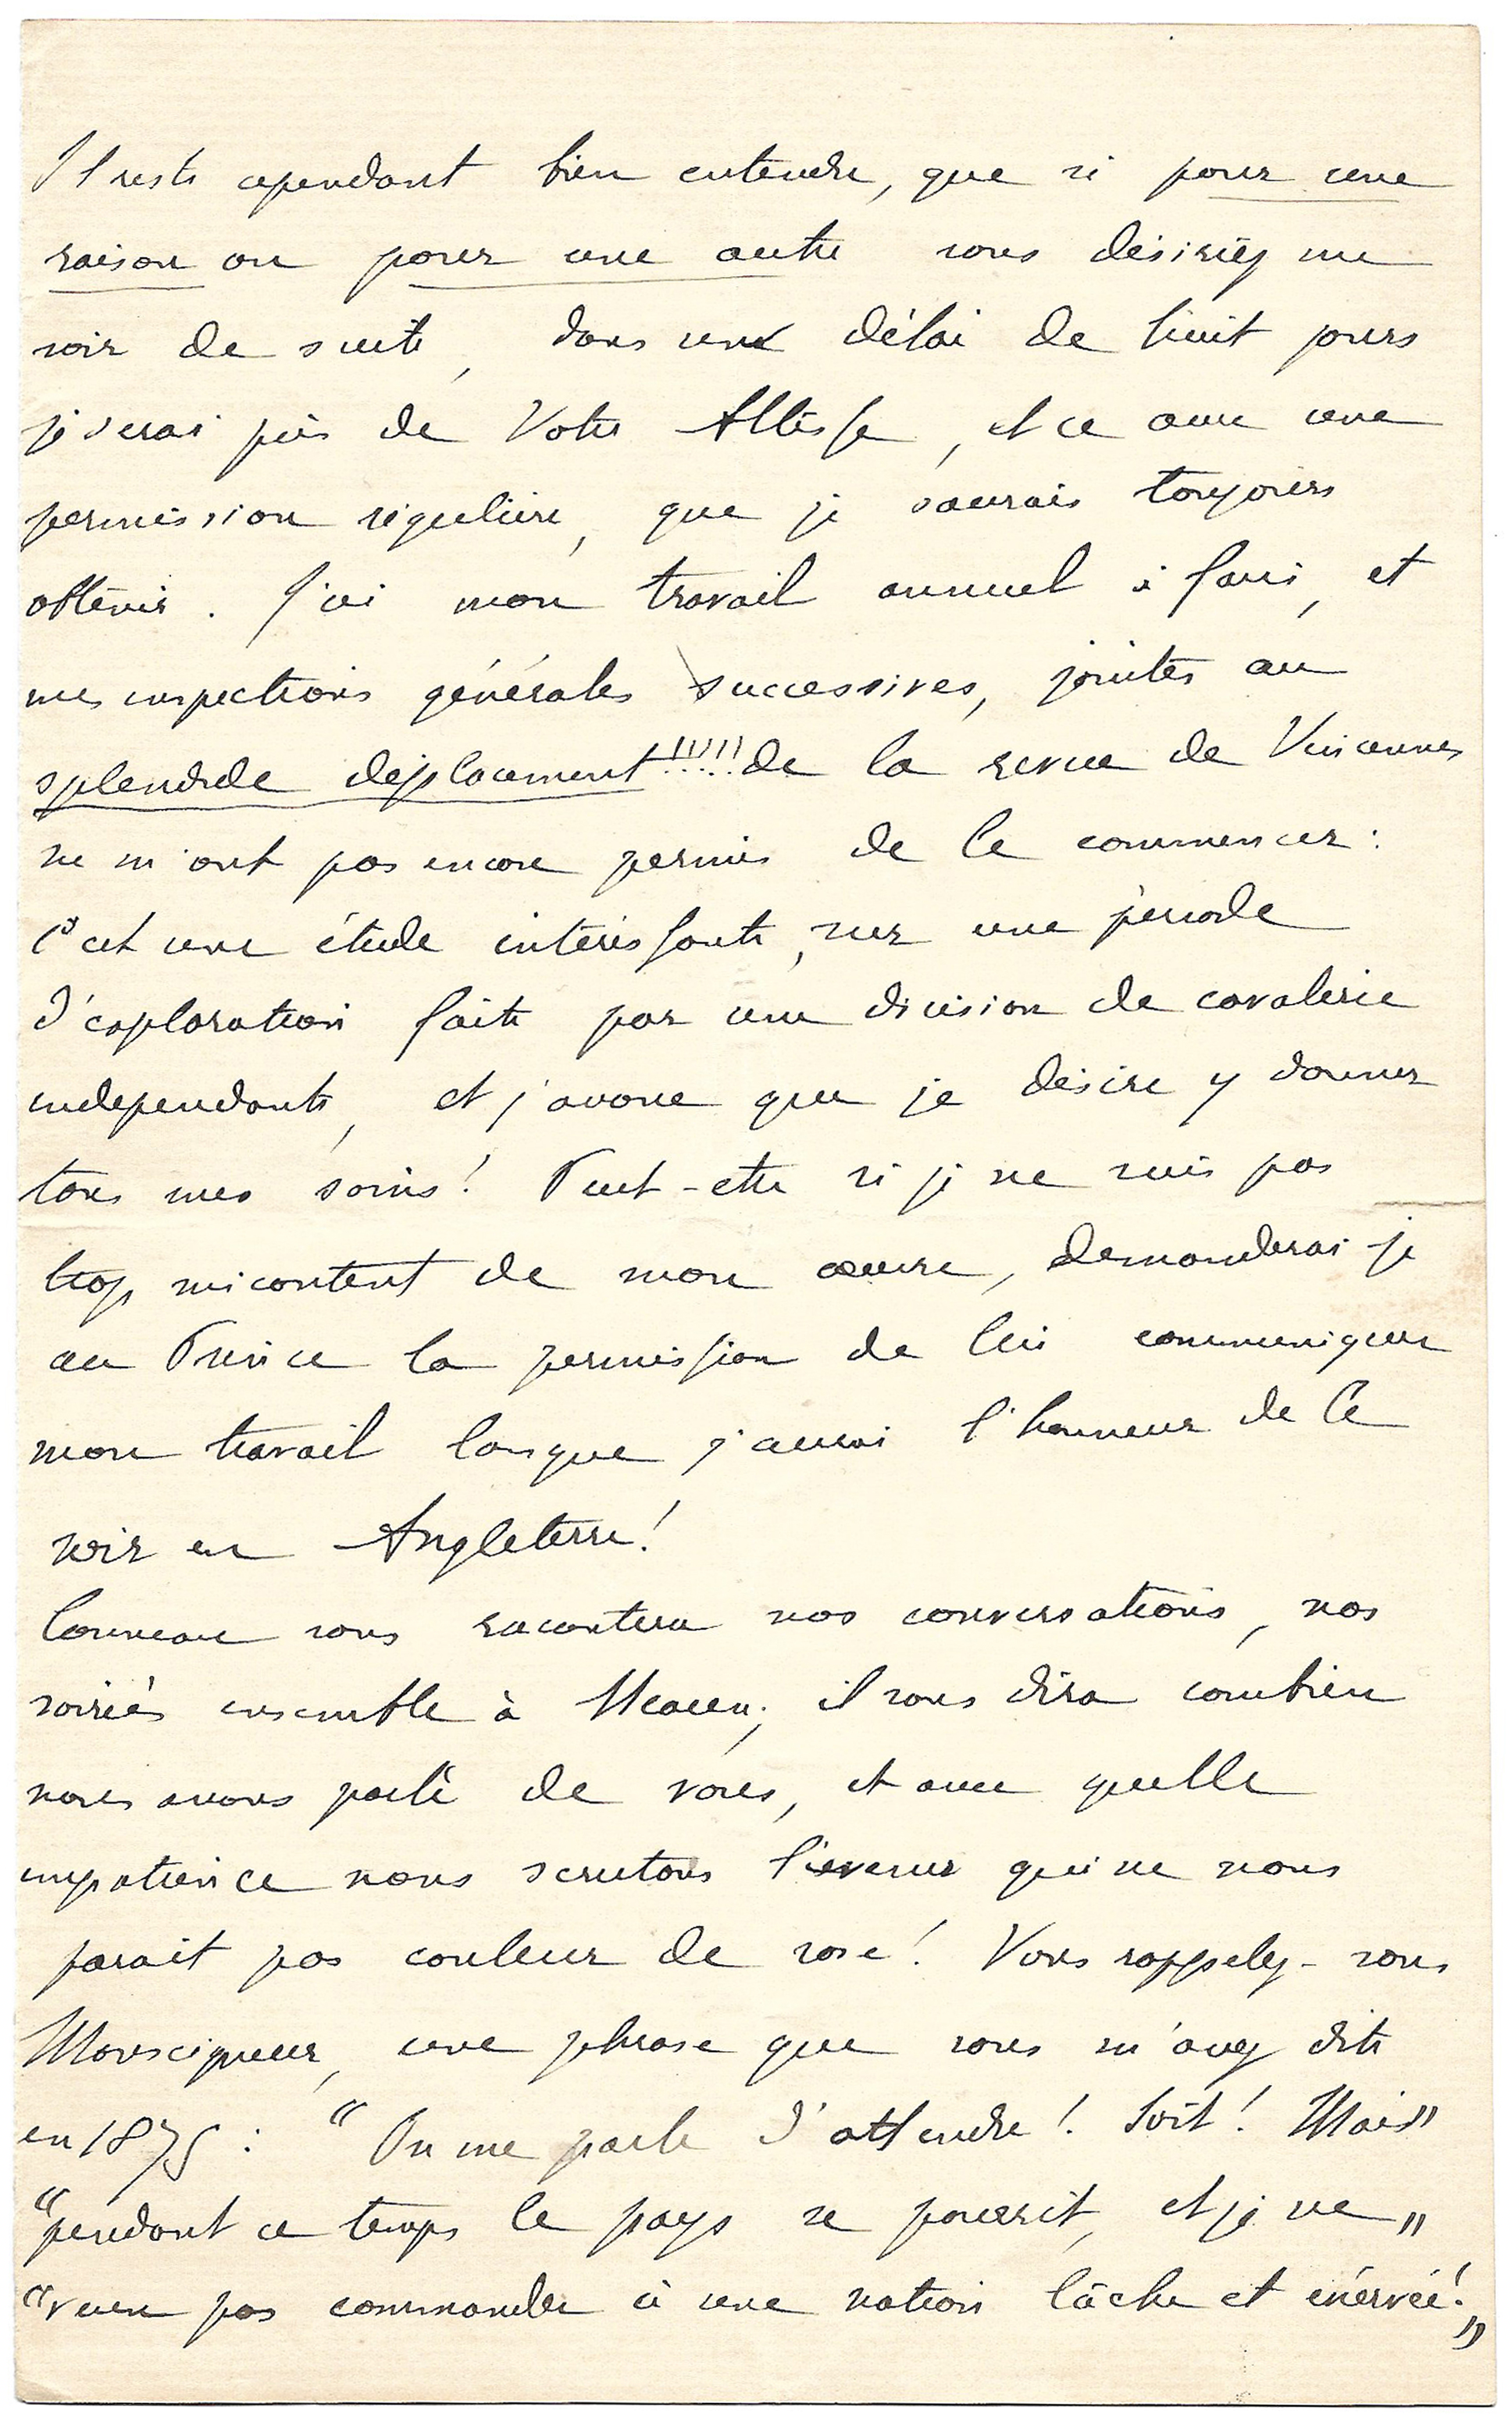 Il reste cependant bien entendu, que si pour une
raison ou pour une autre vous désiriez me
voir de suite, dans un délai de huit jours
je serai près de Votre Altesse, et ce avec une
permission régulière, que je saurais toujours
obtenir. J'ai mon travail annuel à faire, et
mes inspections générales successives, jointes au
splendide déplacement!!!!! de la revue de Vincennes
ne m'ont pas encore permis de le commencer:
C'est une étude intéressante, sur une période
d'exploration faite par une division de cavalerie
indépendante, et j'avoue que je désire y donner
tous mes soins! Peut-être si je ne suis pas
trop mécontent de mon œuvre, demanderai-je
au Prince la permission de lui communiquer
mon travail lorsque j'aurai l'honneur de le
voir en Angleterre!
Conneau vous racontera nos conversations, nos
soirées ensemble à Meaux; il vous dira combien
nous avons parlé de vous, et avec quelle
impatience nous scrutons l'avenir qui ne nous
parait pas couleur de rose! Vous rappelez-vous
Monseigneur, une phrase que vous m'avez dite
en 1875: "On me parle d'attendre! Soit! Mais"
"pendant ce temps le pays se pourrit, et je ne"
"veux pas commander à une nation lâche et énervée!"